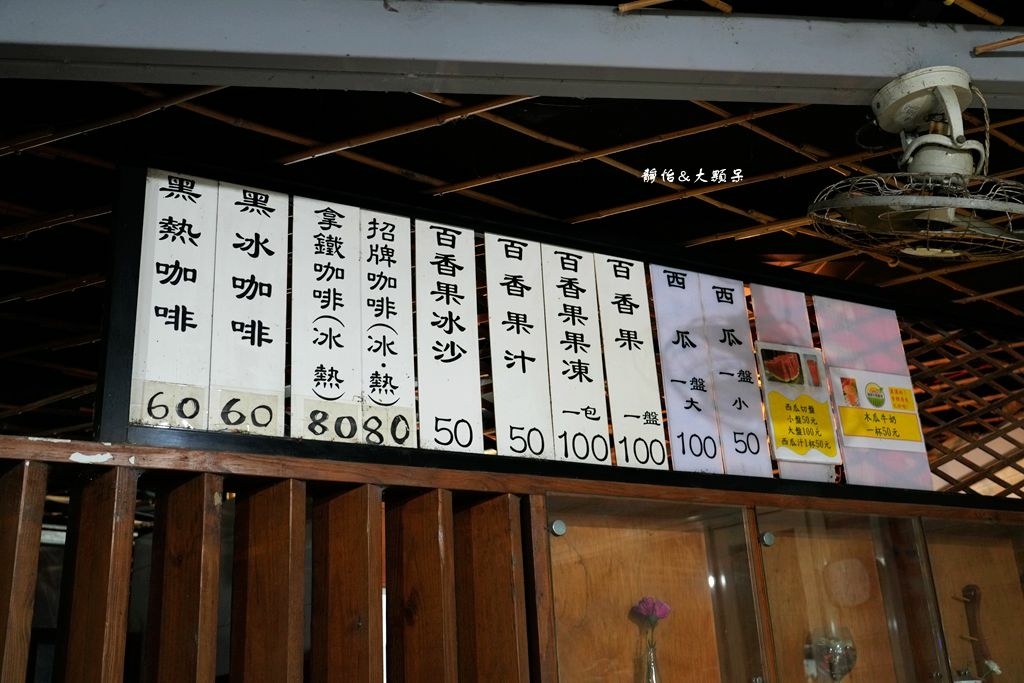 靜怡&大顆呆
黑熱咖啡 60
黑冰咖啡 60
拿鐵咖啡(冰 熱) 80
招牌咖啡(冰·熱) 80
百香果冰沙 50
百香果汁 50
百香果果凍 一包 100
百香果 一盤 100
西瓜 一盤 大 100
西瓜 一盤 小 50
西瓜切盤
小盤50元
大盤100元
西瓜汁1杯50元
木瓜牛奶
一杯50元